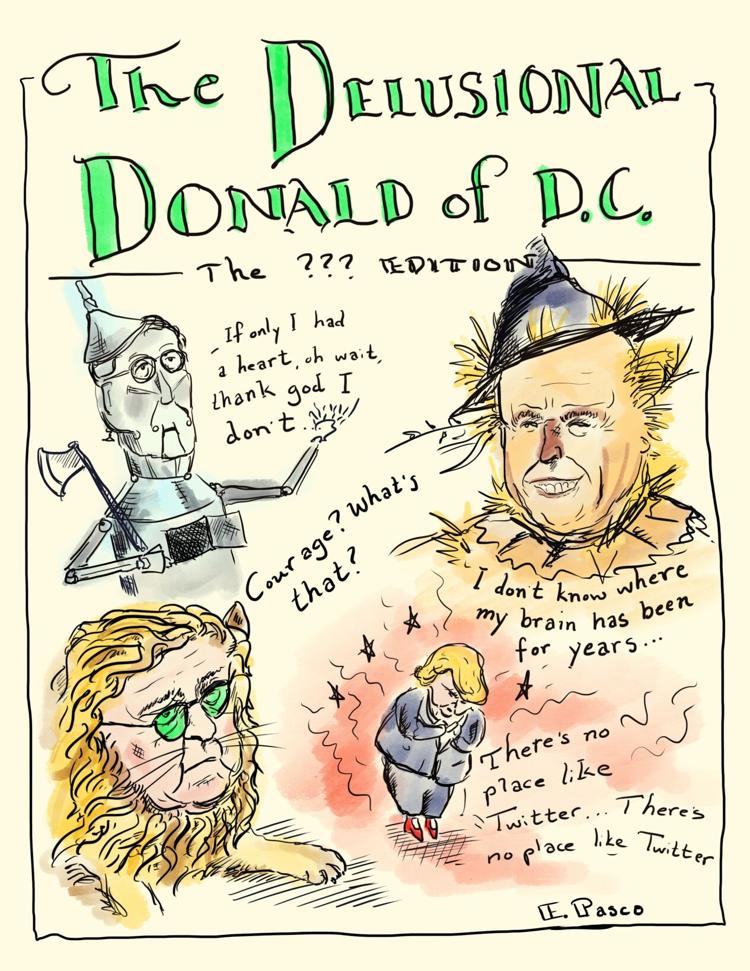 The Delusional
Donald of D.C.
The ??? Edition
If only I had
a heart, oh wait,
thank god I
don't...
Courage? What's
that?
I don't know where
my brain has been
for years...
There's no
place like
Twitter... There's
no place like Twitter
E. Pasco